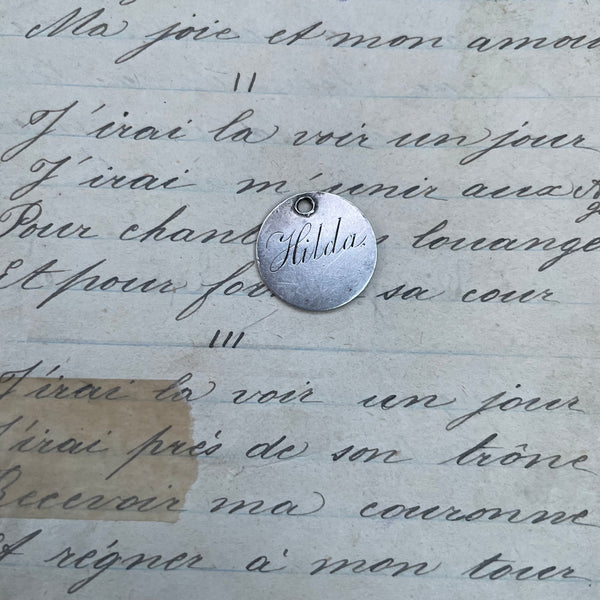 Ma joie et mon amou
II
J'irai la voir un jour
J'irai m'unir aux
Pour chant louange
Hilda.
Et pour for sa cour
III
J'irai la voir un jour
J'irai prés de son trône
Recevoir ma couronne
Et régner à mon tour